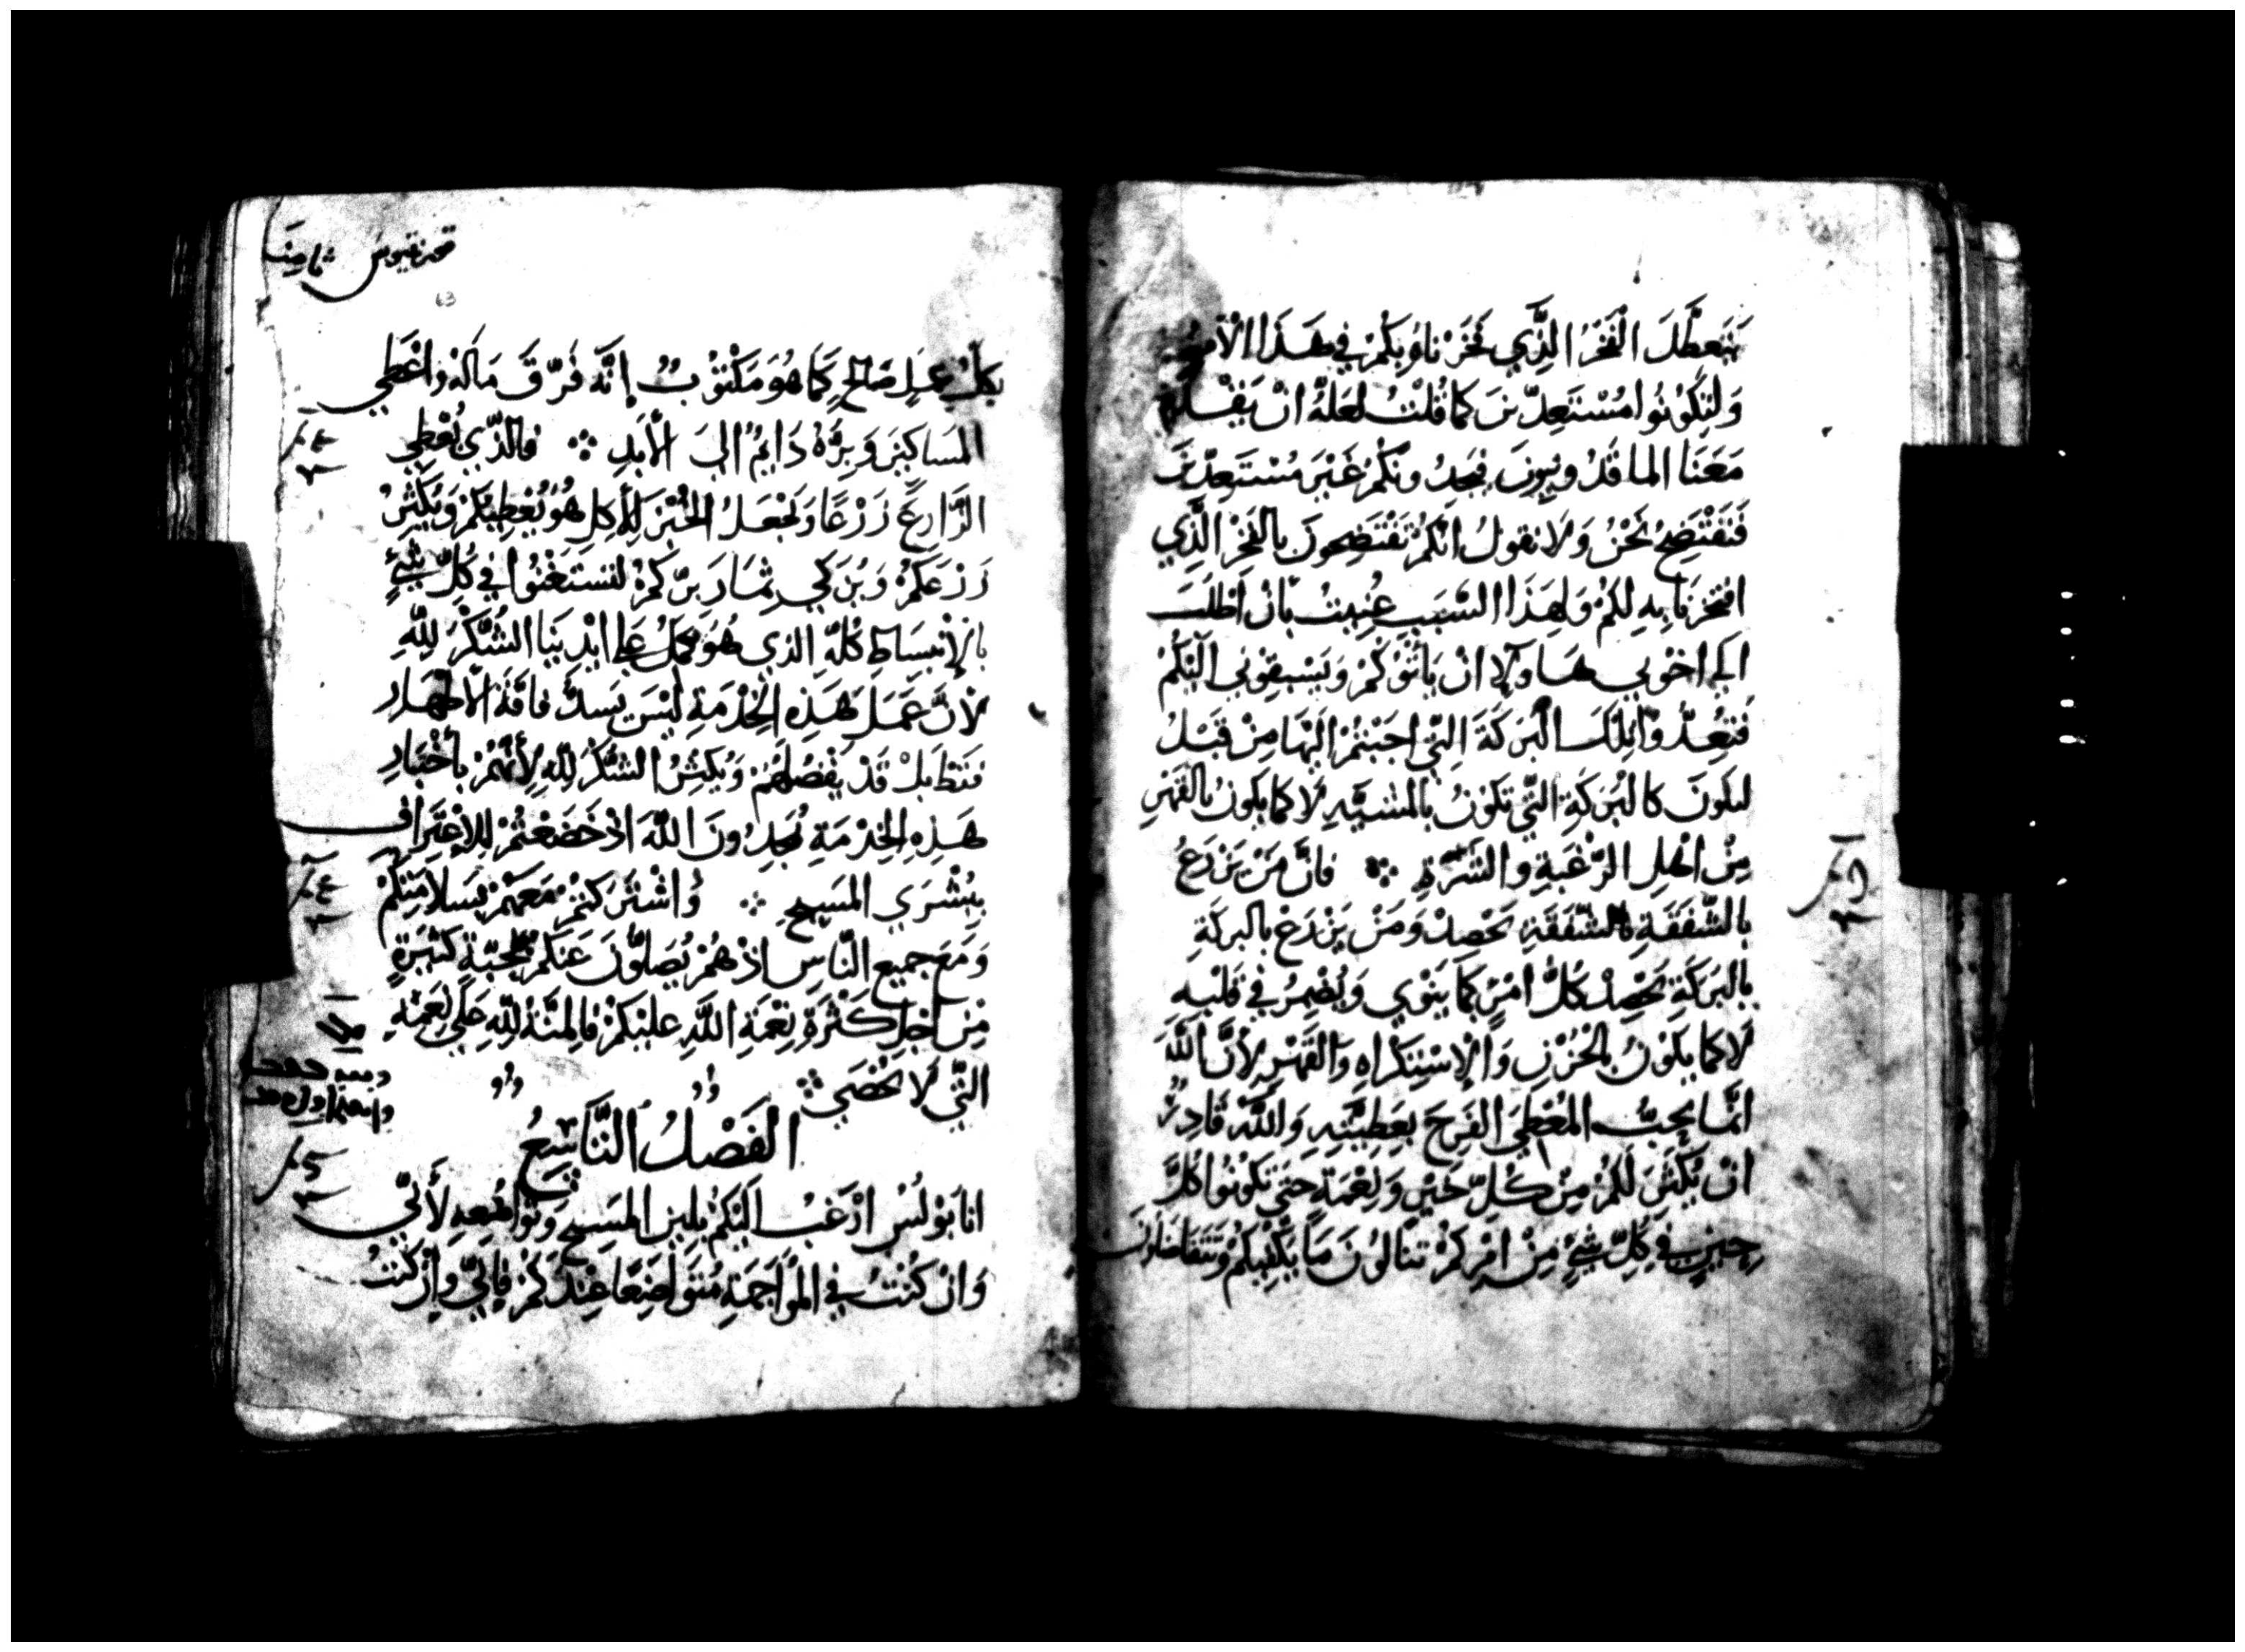 يَتَعَطَّلَ الْفَخْرُ الَّذِي فَخَرْنَا وُبِكُمْ فِي هَذَا الْأَمْرِ
وَلِتَكُوْنُوا مُسْتَعِدِّيْنَ كَمَا قُلْتُ لَعَلَّهُ انْ يَقْدَمَ
مَعَنَا الماقَدُونِيونَ فيَجِدُونَكُمْ غَيْرَ مُسْتَعِدِّيْنَ
فَنَفْتَضِحُ نَحْنُ وَلَا نقولُ انَّكُمْ تَفْتَضِحونَ بالفَخْرِ الَّذِي
افتخرنَا بِهِ لكُمْ وَلِهَذَا السَّبَبِ عُنِيتُ بأن اطْلُبَ
الي اخْوتي هَاولاِ انْ يَأتُوْكُمْ وَيَسْبقِوْنِي الَيْكُمْ
فَتُعِدُّوا تِلكَ الْبَرَكَةَ الِتّي اجَبْتُمْ الَيْهَا مِنْ قَبْلُ
لتكونَ كالبَرَكَةِ التَّي تكَوْنُ بالمشيَّهِ لَا كما يكونُ بالقهْرِ
مِنْ اهْلِ الرَّغْبَةِ والشَّرَهِ ܀ فانَّ مَنْ يَزْرَعُ
بالشَّفَقَةِ بالشَّفَقَةِ يَحْصِدْ وَمَنْ يَزْرَعْ بالبركَةِ
بالبَرَكَةِ يَحْصِدْ كُلُّ امْرٍ كَمَا يَنْوِي وَيُضْمِرُ في قَلْبِهِ
لَا كما يكَوْنُ بالْحُزْنِ وَالْاِسْتِكرَاهِ وَالقَهْرِ لِأَنَّ اللَّهَ
انَّما يُحِبُّ المُعْطِيَ الفَرِحَ بِعَطِيَّتِهِ وَاللَّهُ قَادِرٌ
انْ يُكْثِرَ لَكُمْ مِنْ كُلِّ خَيْرٍ وَنِعْمَةٍ حتي تكُونُوا كُلَّ
حِينٍ في كُلِّ شَيْءٍ مِنْ امْرِكُمْ تنالوُنَ مَا يَكْفِيكُمْ وَتَتَفَاضَلُونَ
قورنثيوس ثانيه
63
بكلِّ عمَلٍ صَالحٍ كَمَا هُوَ مَكْتُوْبٌ إنَّه فَرَّقَ مَالَهُ واعْطَي
المَسَاكِيَن وَبِرُّهُ دَايِمٌ الي الأبدِ ܀ فالذَّي يُعْطِي
الزَّارعَ زَرْعًا وَيَجْعَلُ الخُبْزَ لِلأكلِ هُوَ يُعْطِيكُمْ وَيُكَثِّرُ
زَرْعَكُمْ وَيُزَكي ثِمَارَ بِرّكُمْ لتسْتَغْنُوا في كُلِّ شَيْءٍ
بالاِنْبِسَاطِ كُلِّهِ الذِي هُوَ يُكمِّلُ علي ايْدِيَنا الشُّكْرُ لِلّهِ
لأنَّ عَمَلَ هَذِهِ الخِدْمَةِ ليْسَ يَسدُّ فاقَةَ الاطهَارِ
فَقَطْ بَلْ قَدْ يَفْضُلهُمْ وَيُكثِرُ الشُّكْرَ لِلّهِ لِأنَّهُمْ باخْتبارِ
هَذِهِ الخِدْمَةِ يُمَجِدُونَ اللَّهَ اذْ خَضَعْتُمْ لِلاِعْتِرَافِ
ببُشْرَي المَسِيحِ ܀ وَاشْتَركتُمْ مَعَهُمْ بسَلامَتِكُمْ
وَمَعَ جميعِ النَّاسِ اذْ هُمْ يُصَلُّوْنَ عَنكُمْ بمحَبَّةٍ كثيرَةٍ
مِن اجْلِ كَثْرَةِ نِعْمَةِ اللَّهِ عليْكُمْ فالمنَّةُ لِلّهِ عَلَي نِعَمِهِ
التَّي لَا تُحْصَي
الفَصْلُ التَّاسِعُ
انا بَوْلُسْ ارْغَبُ الَيْكُمْ بلين المَسِيحِ وَتَوَاضُعِهِ لأنّي
وَانْ كُنْتُ في المُوَاجَهَةِ مُتَوَاضِعًا عِنْدَكُمْ فإنّي وانْ كُنتُ